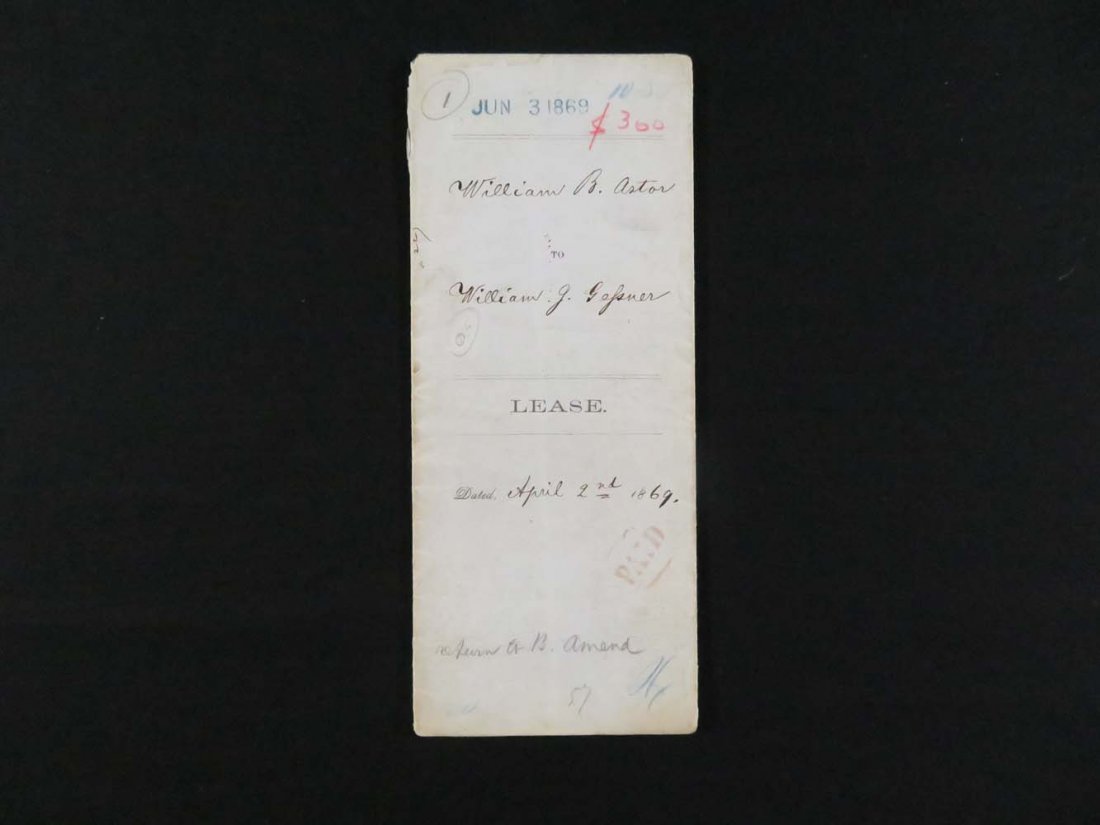 1
JUN 3 1869
10
$300
William B. Astor
TO
William J. Geſsner
LEASE.
Dated, April 2nd 1869.
PAID
return to B. Amend
57